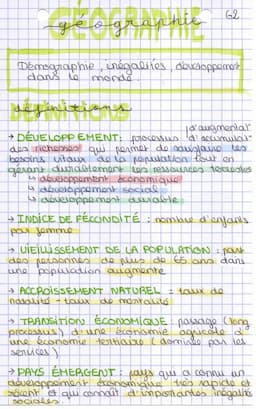 G2
GÉOGRAPHIE
géographie
Démographie, inégalités, développement
dans le monde.
DÉFINITIONS
définitions
→ DÉVELOPPEMENT : processus d'accumulat°
/d'augmentat°
des richesses qui permet de satisfaire les
besoins vitaux de la population tout en
gérant durablement les ressources terrestres
↳ développement économique
↳ développement social
↳ développement durable
→ INDICE DE FÉCONDITÉ : nombre d'enfants
par femme
→ VIEILLISSEMENT DE LA POPULATION : part
des personnes de plus de 65 ans dans
une population augmente
→ ACCROISSEMENT NATUREL = taux de
natalité - taux de mortalité
→ TRANSITION ÉCONOMIQUE : passage (long
processus) d'une économie agricole à
une économie tertiaire (dominée par les
services)
→ PAYS ÉMERGENT : pays qui a connu un
développement économique très rapide et
récent et qui connaît d'importantes inégalités
sociales.